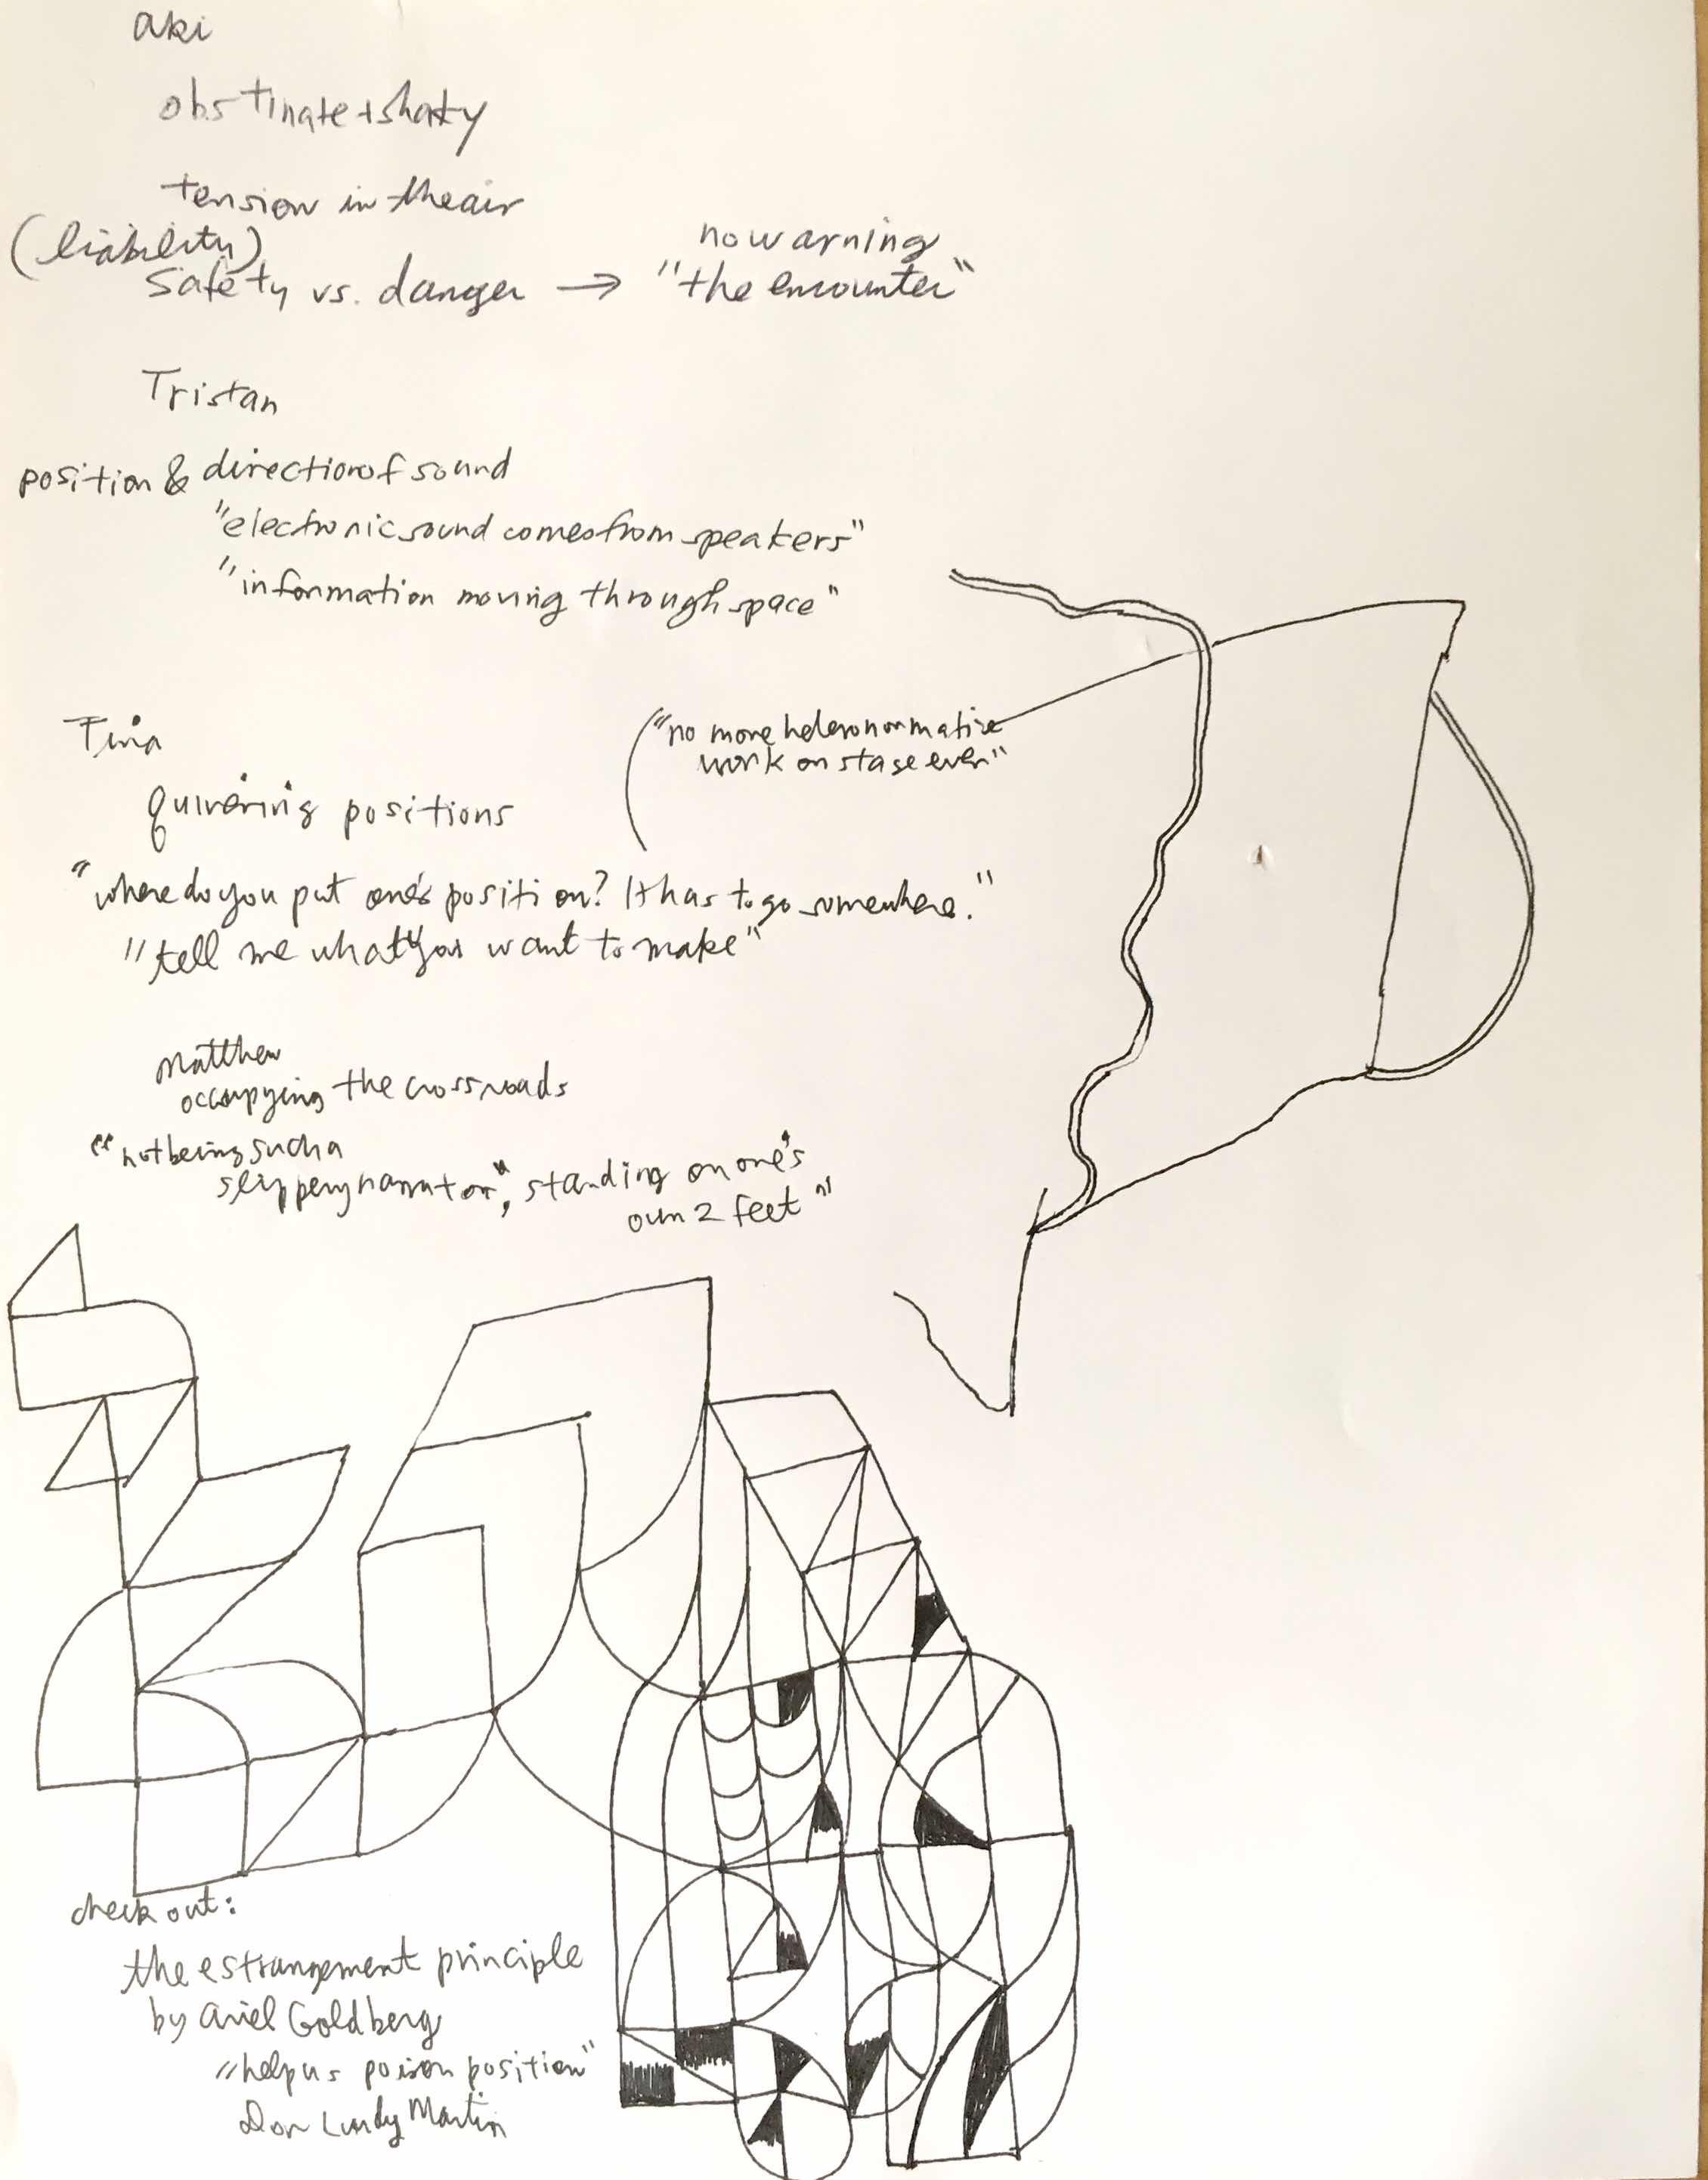 aki
obstinate + shaky
tension in the air
(liability)
safety vs. danger → "the encounter"
no warning
Tristan
position & direction of sound
"electronic sound comes from speakers"
"information moving through space"
Tina
("no more heteronormative
work on stage ever"
quivering positions
"where do you put one's position? It has to go somewhere."
"tell me what you want to make"
Matthew
occupying the crossroads
"not being such a
slippery narrator", standing on one's
own 2 feet"
check out:
the estrangement principle
by Ariel Goldberg
"help us poison position"
Dawn Lundy Martin